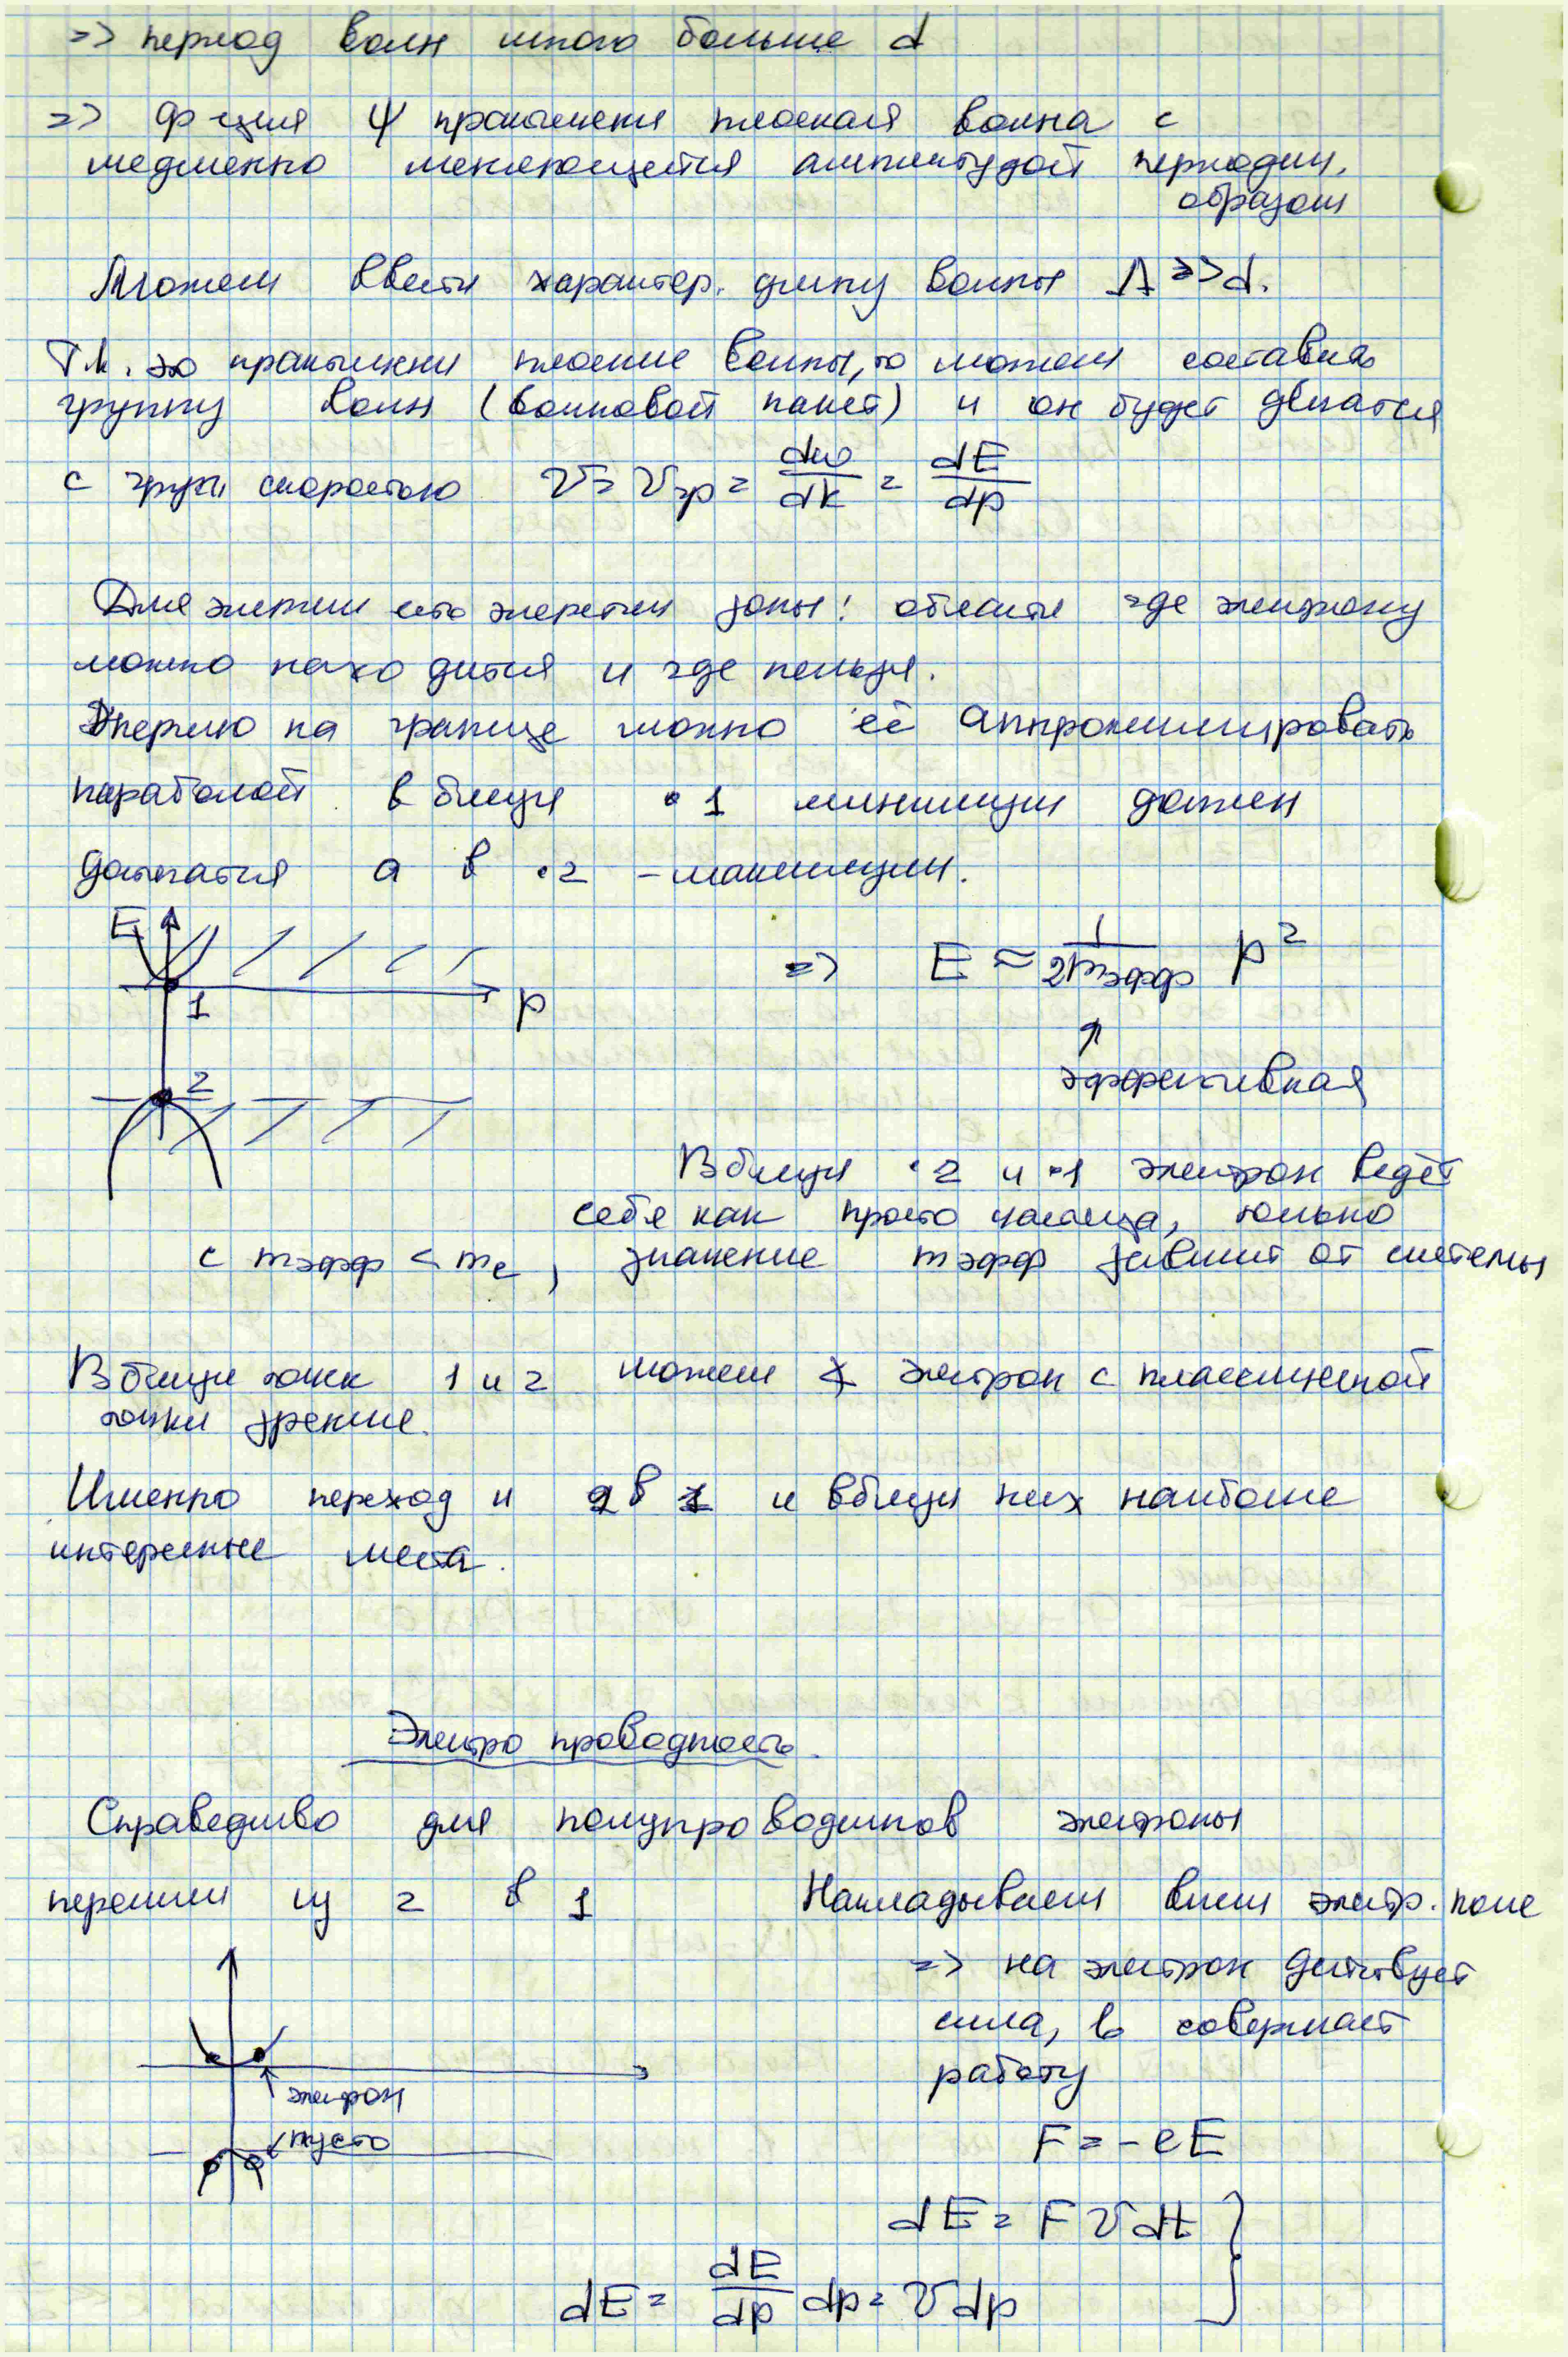 => период волн много больше d
=> ф-ция ψ практически плоская волна с
медленно меняющейся амплитудой периодич.
образом
Можем ввести характер. длину волны Λ >> d.
Т.к. это практически плоские волны, то можем составить
группу волн (волновой пакет) и он будет двигатся
с групп скоростью v = v гр = dω/dk = dE/dp
Для энергии есть энергетич зоны: области где электрону
можно находится и где нельзя.
Энергию на границе можно её аппроксимировать
параболой вблизи •1 минимум должен
достигатся а в •2 - максимум.
E
1
p
=> E ≈ 1/(2m эфф) p²
2
↑
эффективная
Вблизи •2 и •1 электрон ведёт
себя как просто частица, только
с m эфф < m e, значение m эфф зависит от системы
Вблизи точек 1 и 2 можем электрон с классической
точки зрения.
Именно переход и 2 в 1 и вблизи них наиболее
интересные места.
Электро проводность.
Справедливо для полупроводников электроны
перешли из 2 в 1 Накладываем внеш электр. поле
=> на электрон действует
сила, совершает
работу
электрон
пусто
F = -eE
dE = F v dt
dE = dE/dp dp = v dp